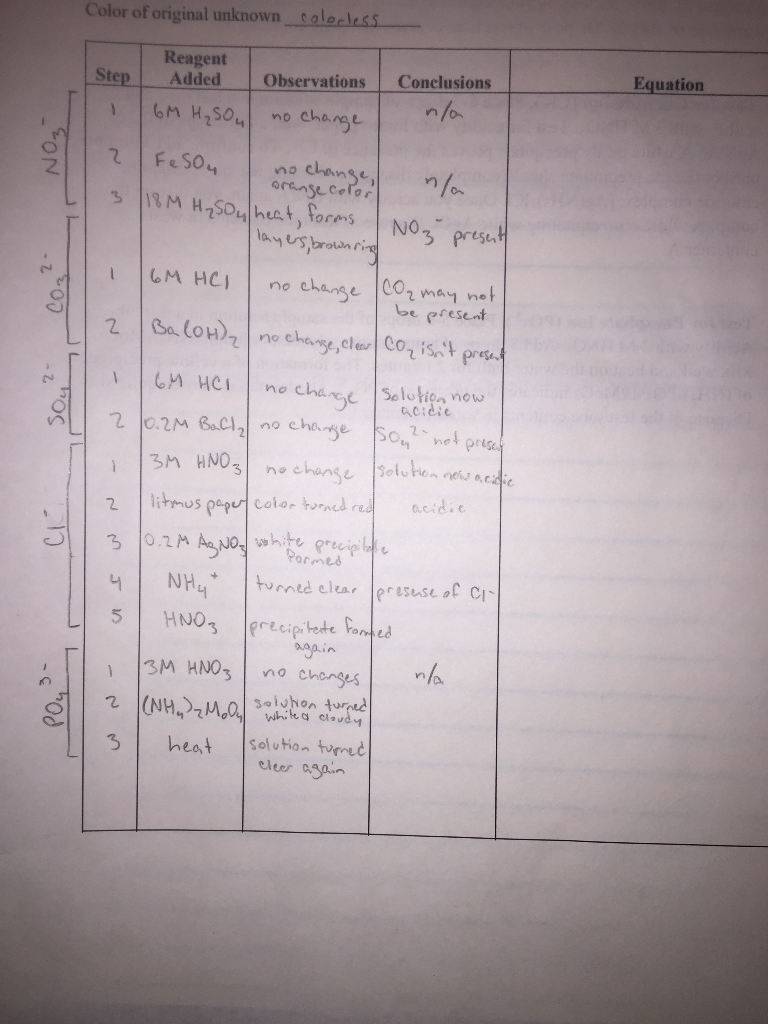 Color of original unknown colorless
Step Reagent Added Observations Conclusions Equation
NO3-
1 6M H2SO4 no change n/a
2 FeSO4 no change, orange color n/a
3 18M H2SO4 heat, forms layers, brown ring NO3- present
CO3 2-
1 6M HCl no change CO2 may not be present
2 Ba(OH)2 no change, clear CO2 isn't present
SO4 2-
1 6M HCl no change solution now acidic
2 0.2M BaCl2 no change SO4 2- not present
Cl-
1 3M HNO3 no change solution now acidic
2 litmus paper color turned red acidic
3 0.2M AgNO3 white precipitate formed
4 NH4+ turned clear presense of Cl-
5 HNO3 precipitate formed again
PO4 3-
1 3M HNO3 no changes n/a
2 (NH4)2MoO4 solution turned white & cloudy
3 heat solution turned clear again